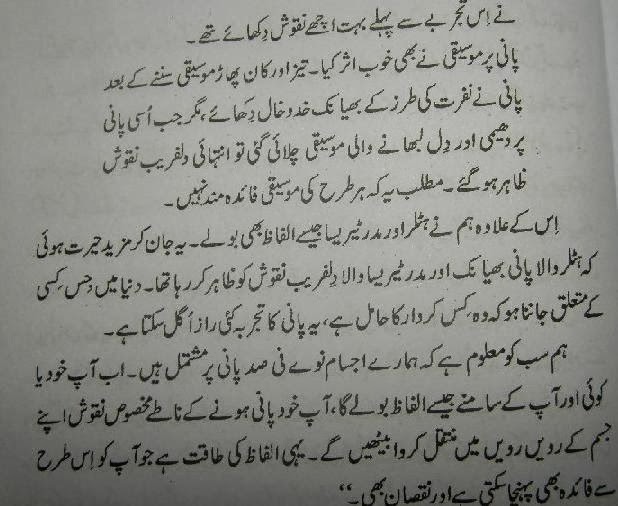 نے اِس تجربے سے پہلے بہت اچھے نقوش دِکھائے تھے۔
پانی پر موسیقی نے بھی خوب اثر کیا۔ تیز اور کان پھاڑ موسیقی سننے کے بعد
پانی نے نفرت کی طرز کے بھیانک خدوخال دِکھائے، مگر جب اُسی پانی
پر دھیمی اور دِل لبھانے والی موسیقی چلائی گئی تو انتہائی دلفریب نقوش
ظاہر ہو گئے۔ مطلب یہ کہ ہر طرح کی موسیقی فائدہ مند نہیں۔
اِس کے علاوہ ہم نے ہٹلر اور مدر ٹیریسا جیسے الفاظ بھی بولے۔ یہ جان کر مزید حیرت ہوئی
کہ ہٹلر والا پانی بھیانک اور مدر ٹیریسا والا دِلفریب نقوش کو ظاہر کر رہا تھا۔ دنیا میں جِس کِسی
کے متعلق جاننا ہو کہ وہ کِس کردار کا حامل ہے، یہ پانی کا تجربہ کئی راز اُگل سکتا ہے۔
ہم سب کو معلوم ہے کہ ہمارے اجسام نوے فی صد پانی پر مشتمل ہیں۔ اب آپ خود یا
کوئی اور آپ کے سامنے جیسے الفاظ بولے گا، آپ خود پانی ہونے کے ناطے مخصوص نقوش اپنے
جسم کے رویں رویں میں منتقل کروا بیٹھیں گے۔ یہی الفاظ کی طاقت ہے جو آپ کو اِس طرح
سے فائدہ بھی پہنچا سکتی ہے اور نقصان بھی۔‘‘